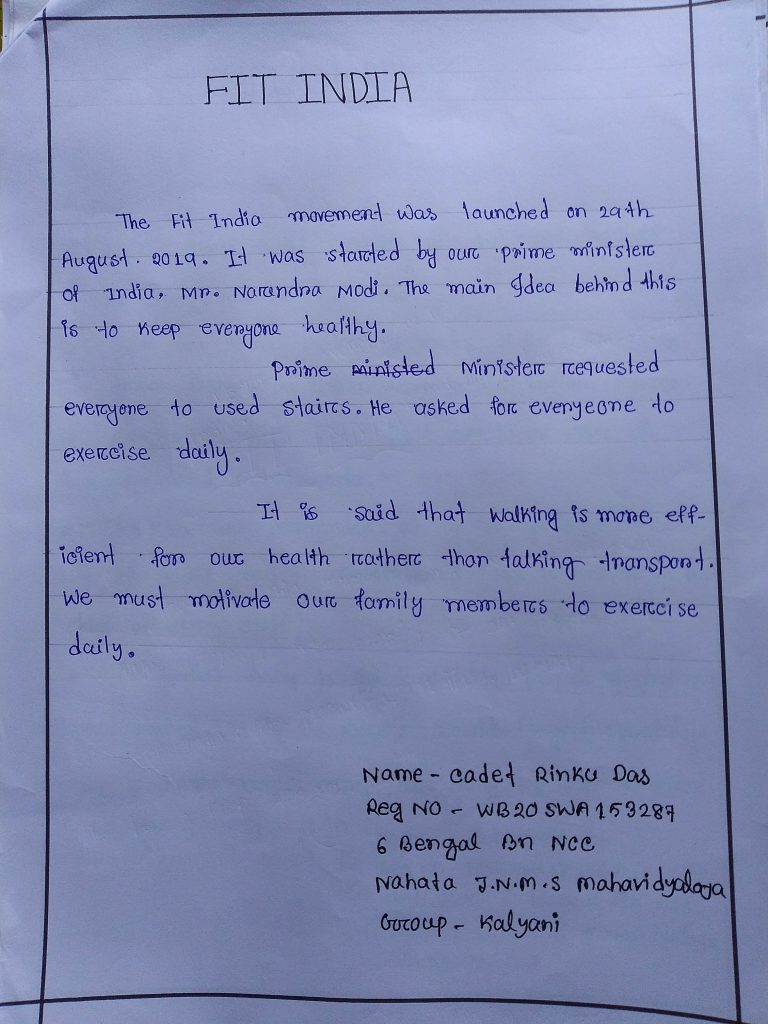 FIT INDIA
The Fit India movement was launched on 29th
August. 2019. It was started by our prime minister
of India, Mr. Narendra Modi. The main Idea behind this
is to keep everyone healthy.
Prime ministed Minister requested
everyone to used stairs. He asked for everyeone to
exercise daily.
It is said that walking is more eff-
icient for our health rather than talking transport.
We must motivate our family members to exercise
daily.
Name - Cadet Rinku Das
Reg NO - WB20SWA153287
6 Bengal Bn NCC
Nahata J.N.M.S mahavidyalaya
Group - Kalyani